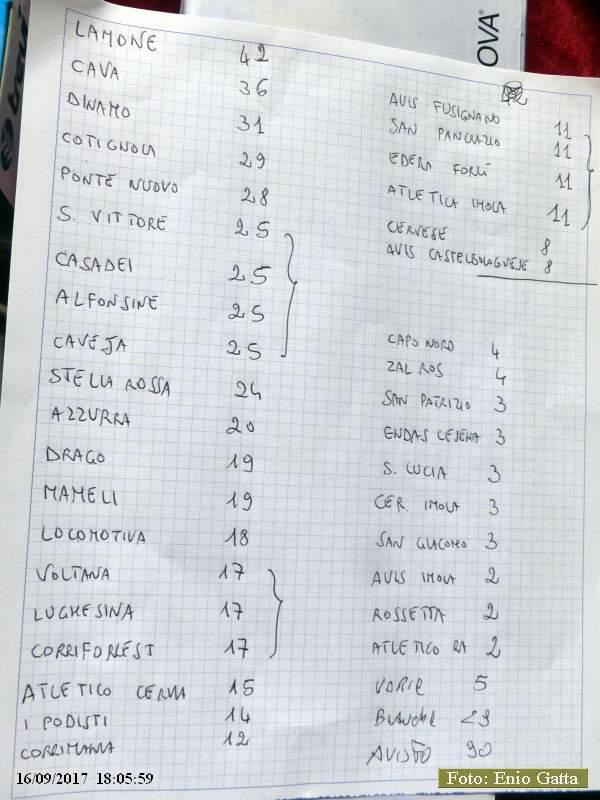 LAMONE 42
CAVA 36
DINAMO 31
COTIGNOLA 29
PONTE NUOVO 28
S. VITTORE 25
CASADEI 25
ALFONSINE 25
CAVEJA 25
STELLA ROSSA 24
AZZURRA 20
DRAGO 19
MAMELI 19
LOCOMOTIVA 18
VOLTANA 17
LUGHESINA 17
CORRIFORREST 17
ATLETICO CERVIA 15
I PODISTI 14
CORRIMANIA 12
OVA
AVIS FUSIGNANO 11
SAN PANCRAZIO 11
EDERA FORLÌ 11
ATLETICA IMOLA 11
CERVESE 8
AVIS CASTELBOLOGNESE 8
CAPO NORD 4
ZAL ROS 4
SAN PATRIZIO 3
ENDAS CESENA 3
S. LUCIA 3
CER. IMOLA 3
SAN GIACOMO 3
AVIS IMOLA 2
ROSSETTA 2
ATLETICO RA 2
VARIE 5
29
90
16/09/2017 18:05:59
Foto: Enio Gatta